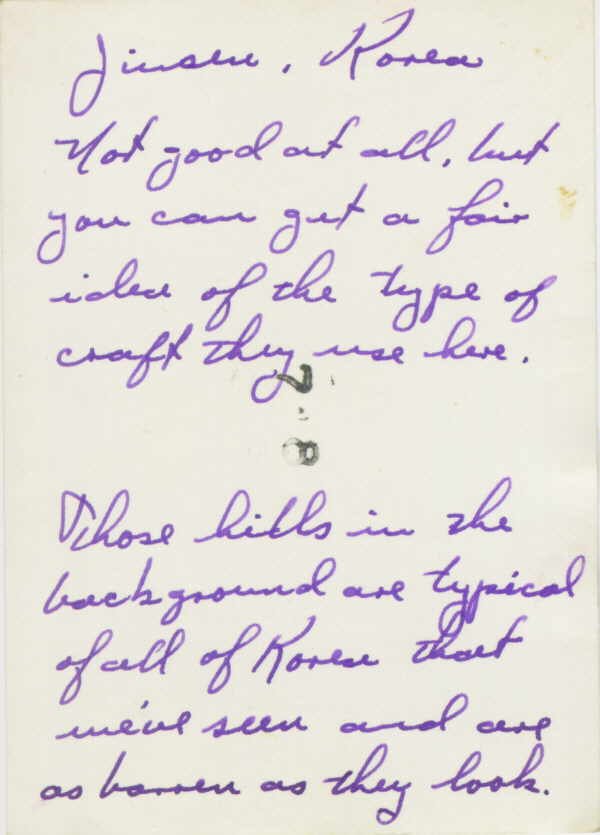 Jinsen, Korea
Not good at all, but
you can get a fair
idea of the type of
craft they use here.
Those hills in the
background are typical
of all of Korea that
we've seen and are
as barren as they look.